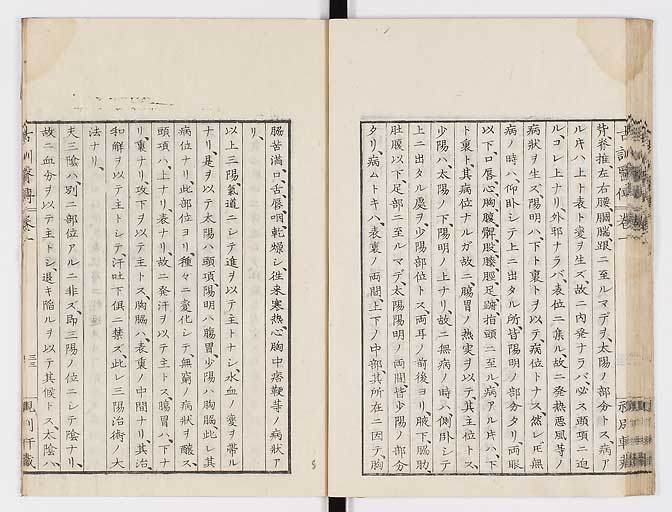 脊脊推左右腰膕腨跟ニ至ルマデヲ、太陽ノ部分トス病ア
ル片ハ上ト表ト変ヲ生ズ故ニ内発ナラハ、必ス頭項ニ迫
ル、コレ上ナリ、外邪ナラバ、表位ニ集ル、故ニ発熱悪風等ノ
病状ヲ生ズ、陽明ハ、下ト裏トヲ以テ、病位トナス、然レ𪜈無
病ノ時ハ、仰臥シテ上ニ出タル所、皆陽明ノ部分タリ、両眼
以下、口唇、心胸腹髀股膝脛足跗、指頭ニ至ル、病アル片ハ、下
ト裏ト、其病位ナルガ故ニ、腸胃ノ熱実ヲ以テ、其主位トス、
少陽ハ、太陽ノ下、陽明ノ上ナリ、故ニ無病ノ時ハ、側臥シテ
上ニ出タル処ヲ、少陽部位トス、両耳ノ前後ヨリ、腋下、脇肋、
肚腹以下、足部ニ至ルマデ、太陽陽明ノ両間、皆少陽ノ部分
タリ、病ムトキハ、表裏ノ両間、上下ノ中部、其所在ニ因テ、胸
脇苦満、口舌唇咽乾燥シ、往来寒熱、心胸中痞鞕等ノ病状ア
リ、
以上三陽、気道ニシテ進ヲ以テ主トナシ、水血ノ変ヲ帯ル
ナリ、是ヲ以テ太陽ハ頭項、陽明ハ腸胃、少陽ハ胸脇、此レ其
病位ナリ、此部位ヨリ、種々ニ変化シテ、無窮ノ病状ヲ醸ス、
頭項ハ、上ナリ、表ナリ、故ニ発汗ヲ以テ主トス、腸胃ハ、下ナ
リ、裏ナリ、攻下ヲ以テ主トス、胸脇ハ、表裏ノ中間ナリ、其治、
和解ヲ以テ主トシテ、汗吐下俱ニ禁ズ、此レ三陽治術ノ大
法ナリ、
夫三陰ハ、別ニ部位アルニ非ズ、即三陽ノ位ニシテ陰ナリ、
故ニ血分ヲ以テ主トシ、退キ陥ルヲ以テ其候トス、太陰ハ、